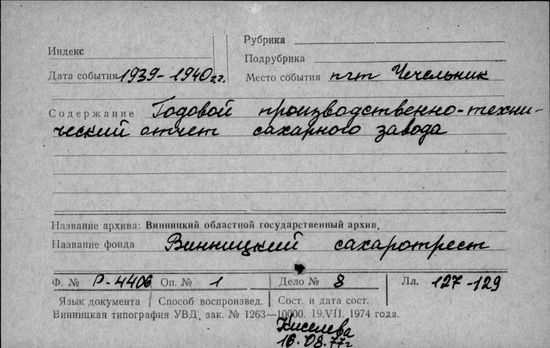 Рубрика
Индекс
Подрубрика
Дата события 1939-1940 г.г. Место события пгт Чечельник
Содержание Годовой производственно-техни-
ческий отчет сахарного завода
Название архива: Винницкий областной государственный архив
Название фонда Винницкий сахаротрест
Ф. № Р-4406 Оп. № 1 Дело № 8 Лл. 127-129
Язык документа Способ воспроизвед. Сост. и дата сост.
Винницкая типография УВД, зак. № 1263—10000. 19.VII. 1974 года.
Киселева
16.08.77г